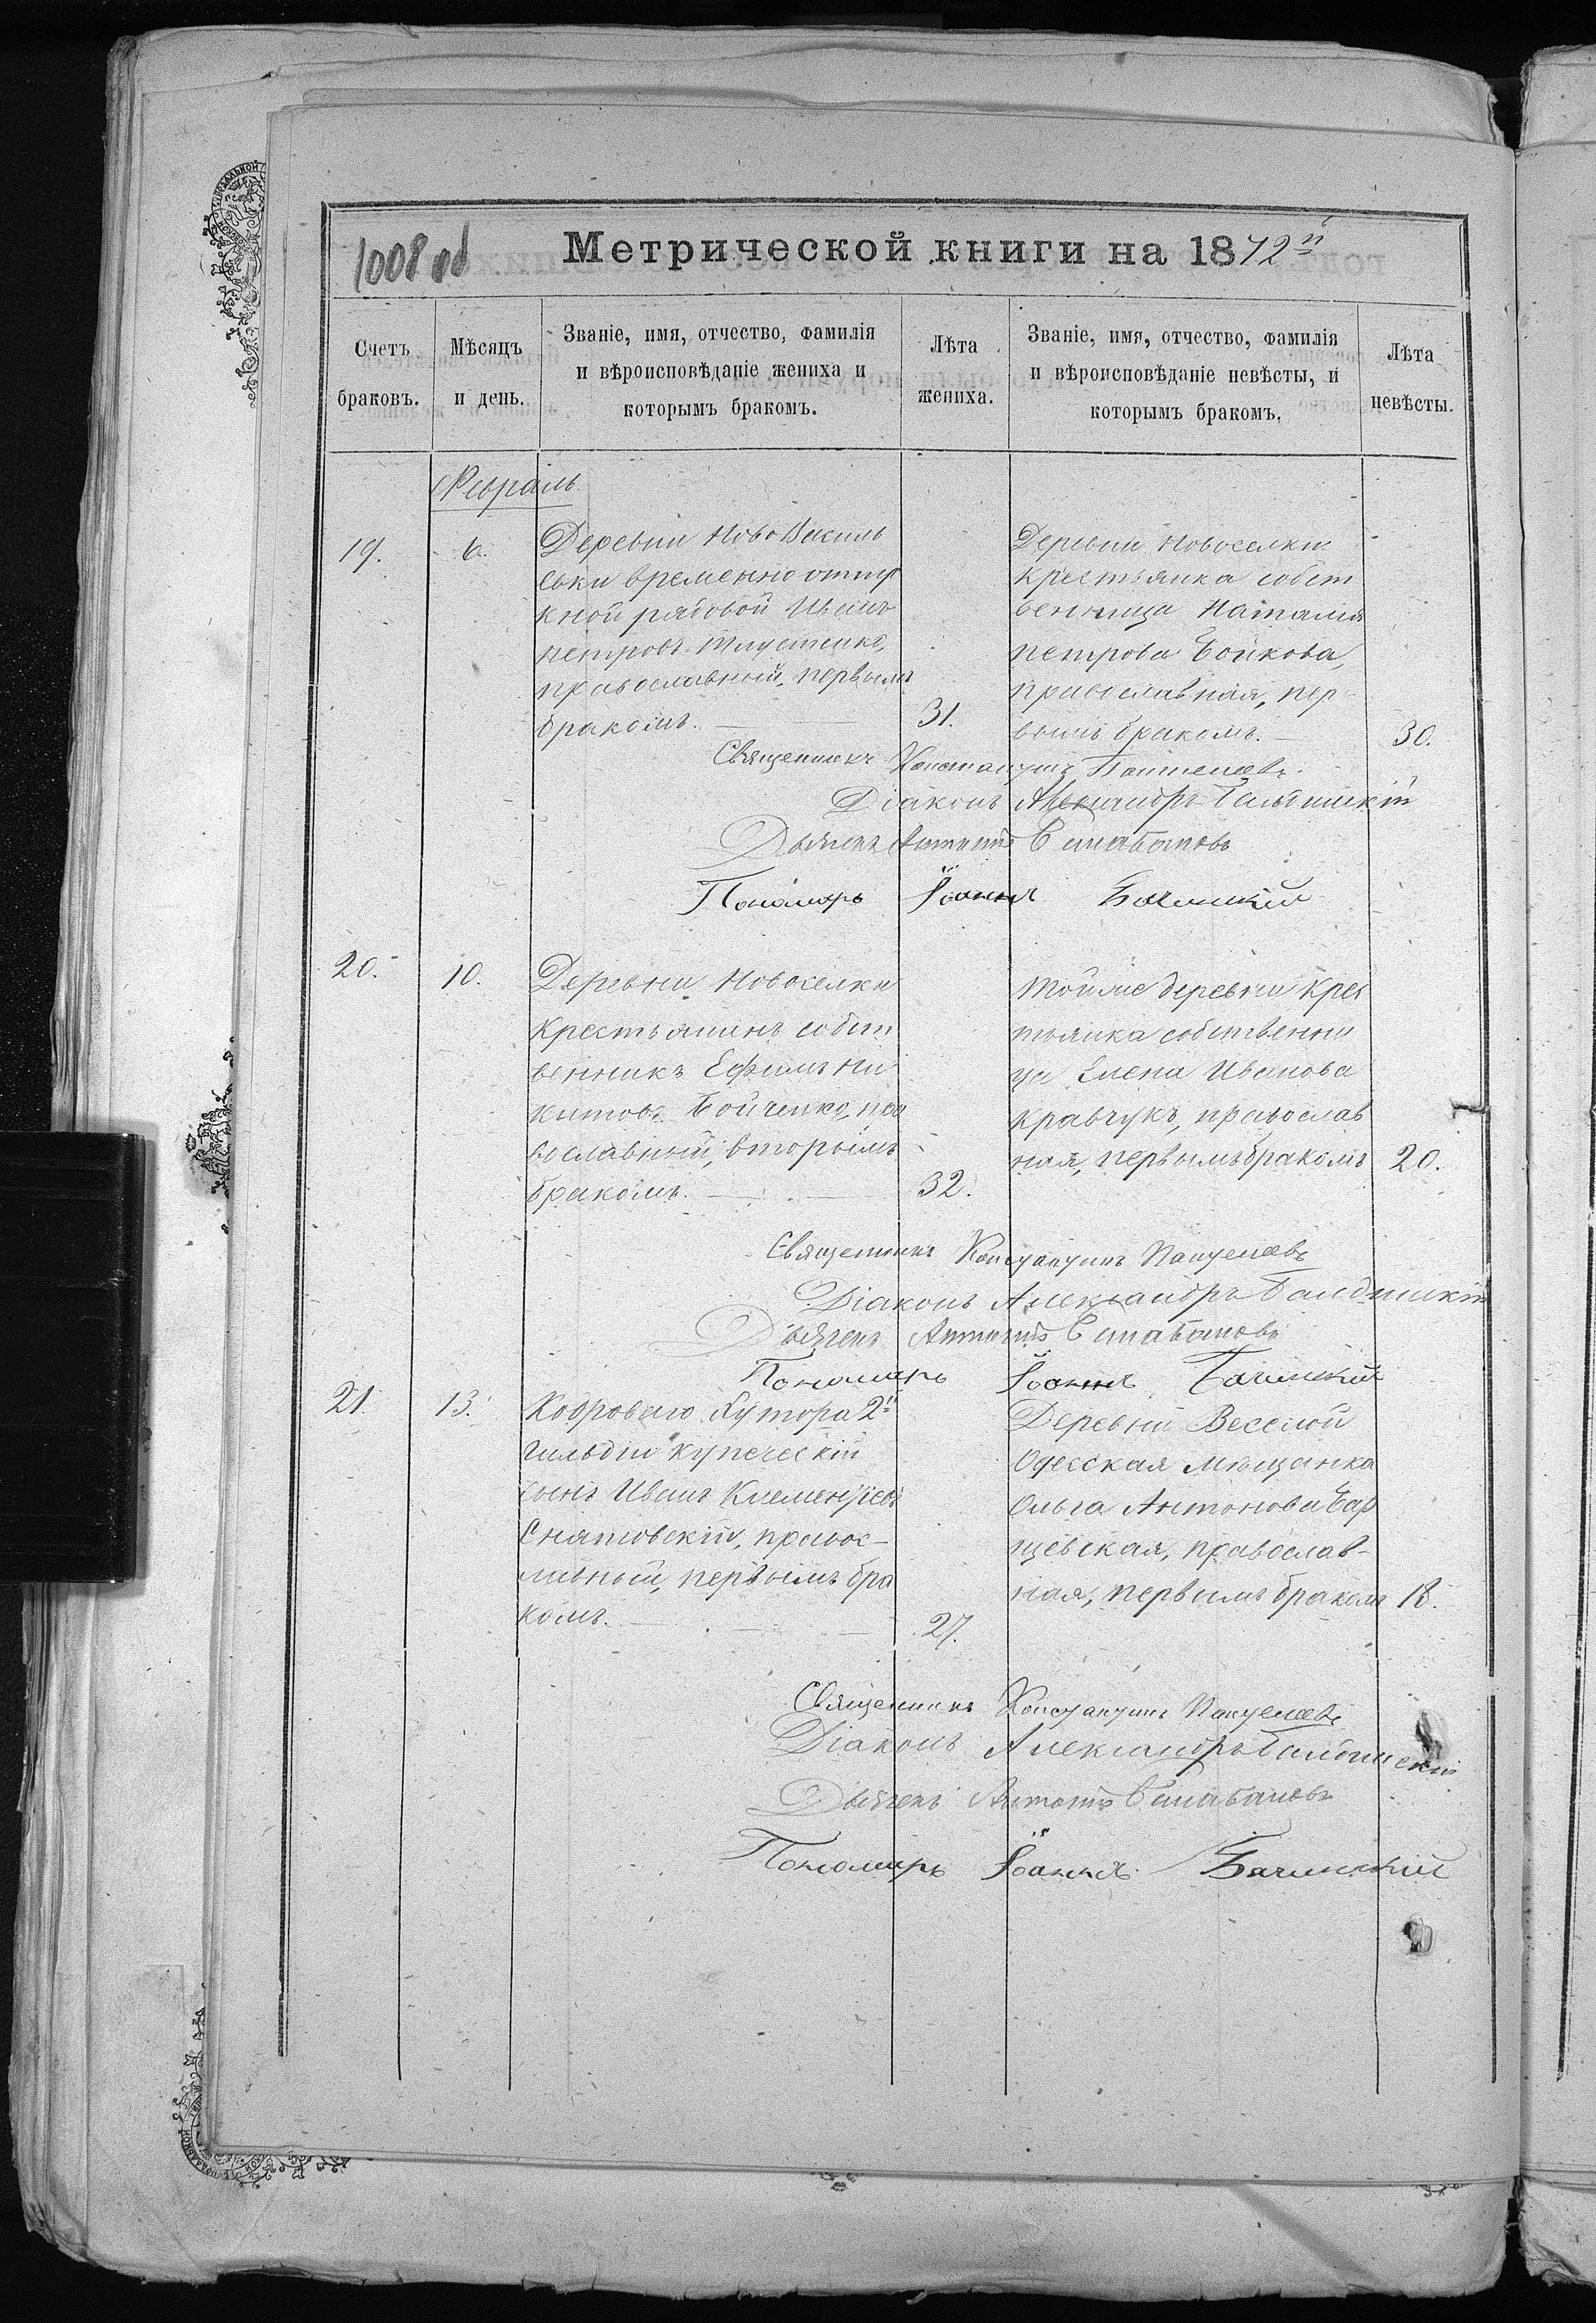 1008 об
Метрической книги на 1872й
Счетъ браковъ.
Мѣсяцъ и день.
Званіе, имя, отчество, фамилія и вѣроисповѣданіе жениха и которымъ бракомъ.
Лѣта жениха.
Званіе, имя, отчество, фамилія и вѣроисповѣданіе невѣсты, и которымъ бракомъ.
Лѣта невѣсты.
Февраль
19.
6.
Деревни Ново Василь
евки временно отпу
кной рядовой Иванъ
Петровъ
православный, первымъ
бракомъ.
31.
Деревни Новоселки
крестьянка собст
венница Наталия
Петрова Бойкова,
православная, пер
вымъ бракомъ.
30.
Священникъ Константинъ Пантелеевъ
Діаконъ Александръ
Дьячекъ Антоній
Пономарь Іоаннъ Бачинскій
20.
10.
Деревни Новоселки
крестьянинъ собст
венникъ Ефимъ Ни
китовъ Бойченко, пра
вославный, вторымъ
бракомъ.
32.
Тойже деревни крес
тьянка собственни
ца Елена Иванова
Кравчукъ, православ
ная, первымъ бракомъ
20.
Священникъ Константинъ Пантелеевъ
Діаконъ Александръ
Дьячекъ Антоній
Пономарь Іоаннъ Бачинскій
21.
13.
Хутора 2й
гильдіи купеческій
сынъ Иванъ Климентіевъ
Снятовскій, правос-
лавный, первымъ бра
комъ.
27.
Деревни Веселой
Одесская мѣщанка
Ольга Антонова Бар
щевская, православ-
ная, первымъ бракомъ
18.
Священникъ Константинъ Пантелеевъ
Діаконъ Александръ
Дьячекъ Антоній
Пономарь Іоаннъ Бачинскій